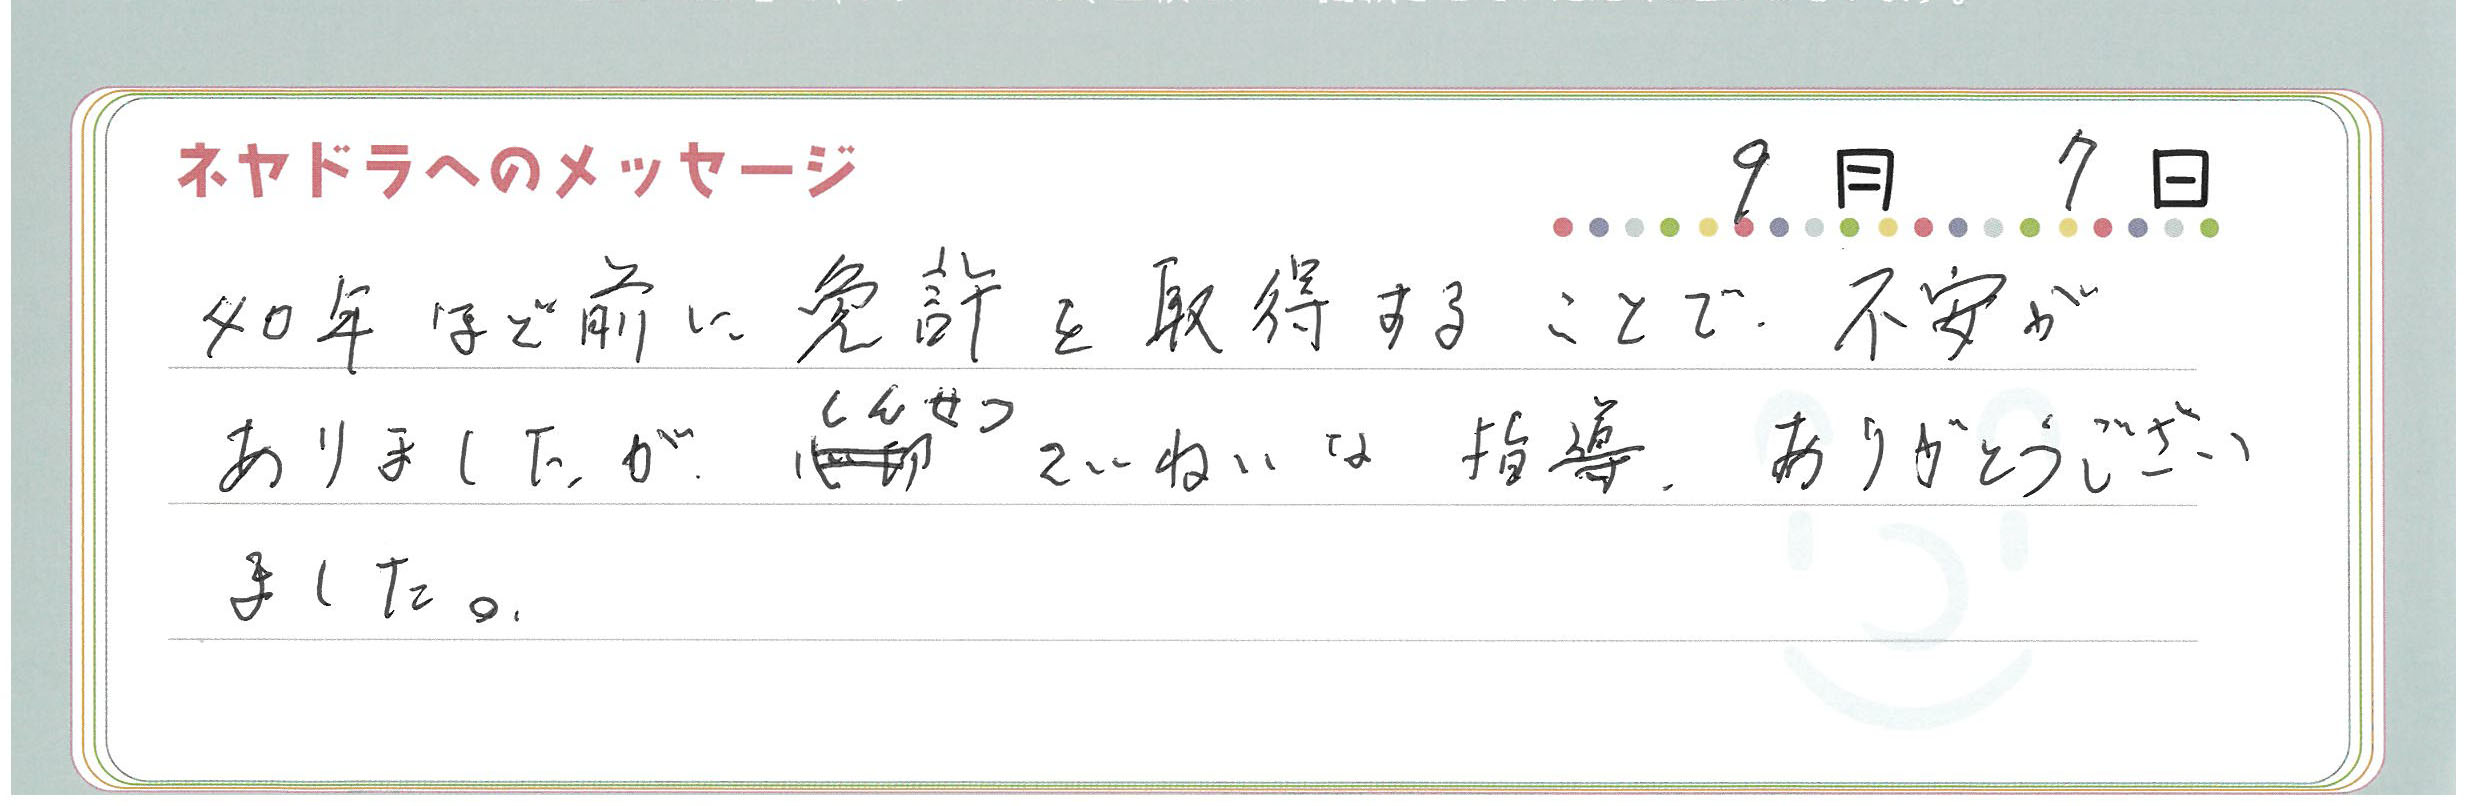 ネヤドラへのメッセージ
9月 7日
40年ほど前に免許を取得することで、不安が
ありましたが、しんせつ ていねいな 指導、ありがとうござい
ました。